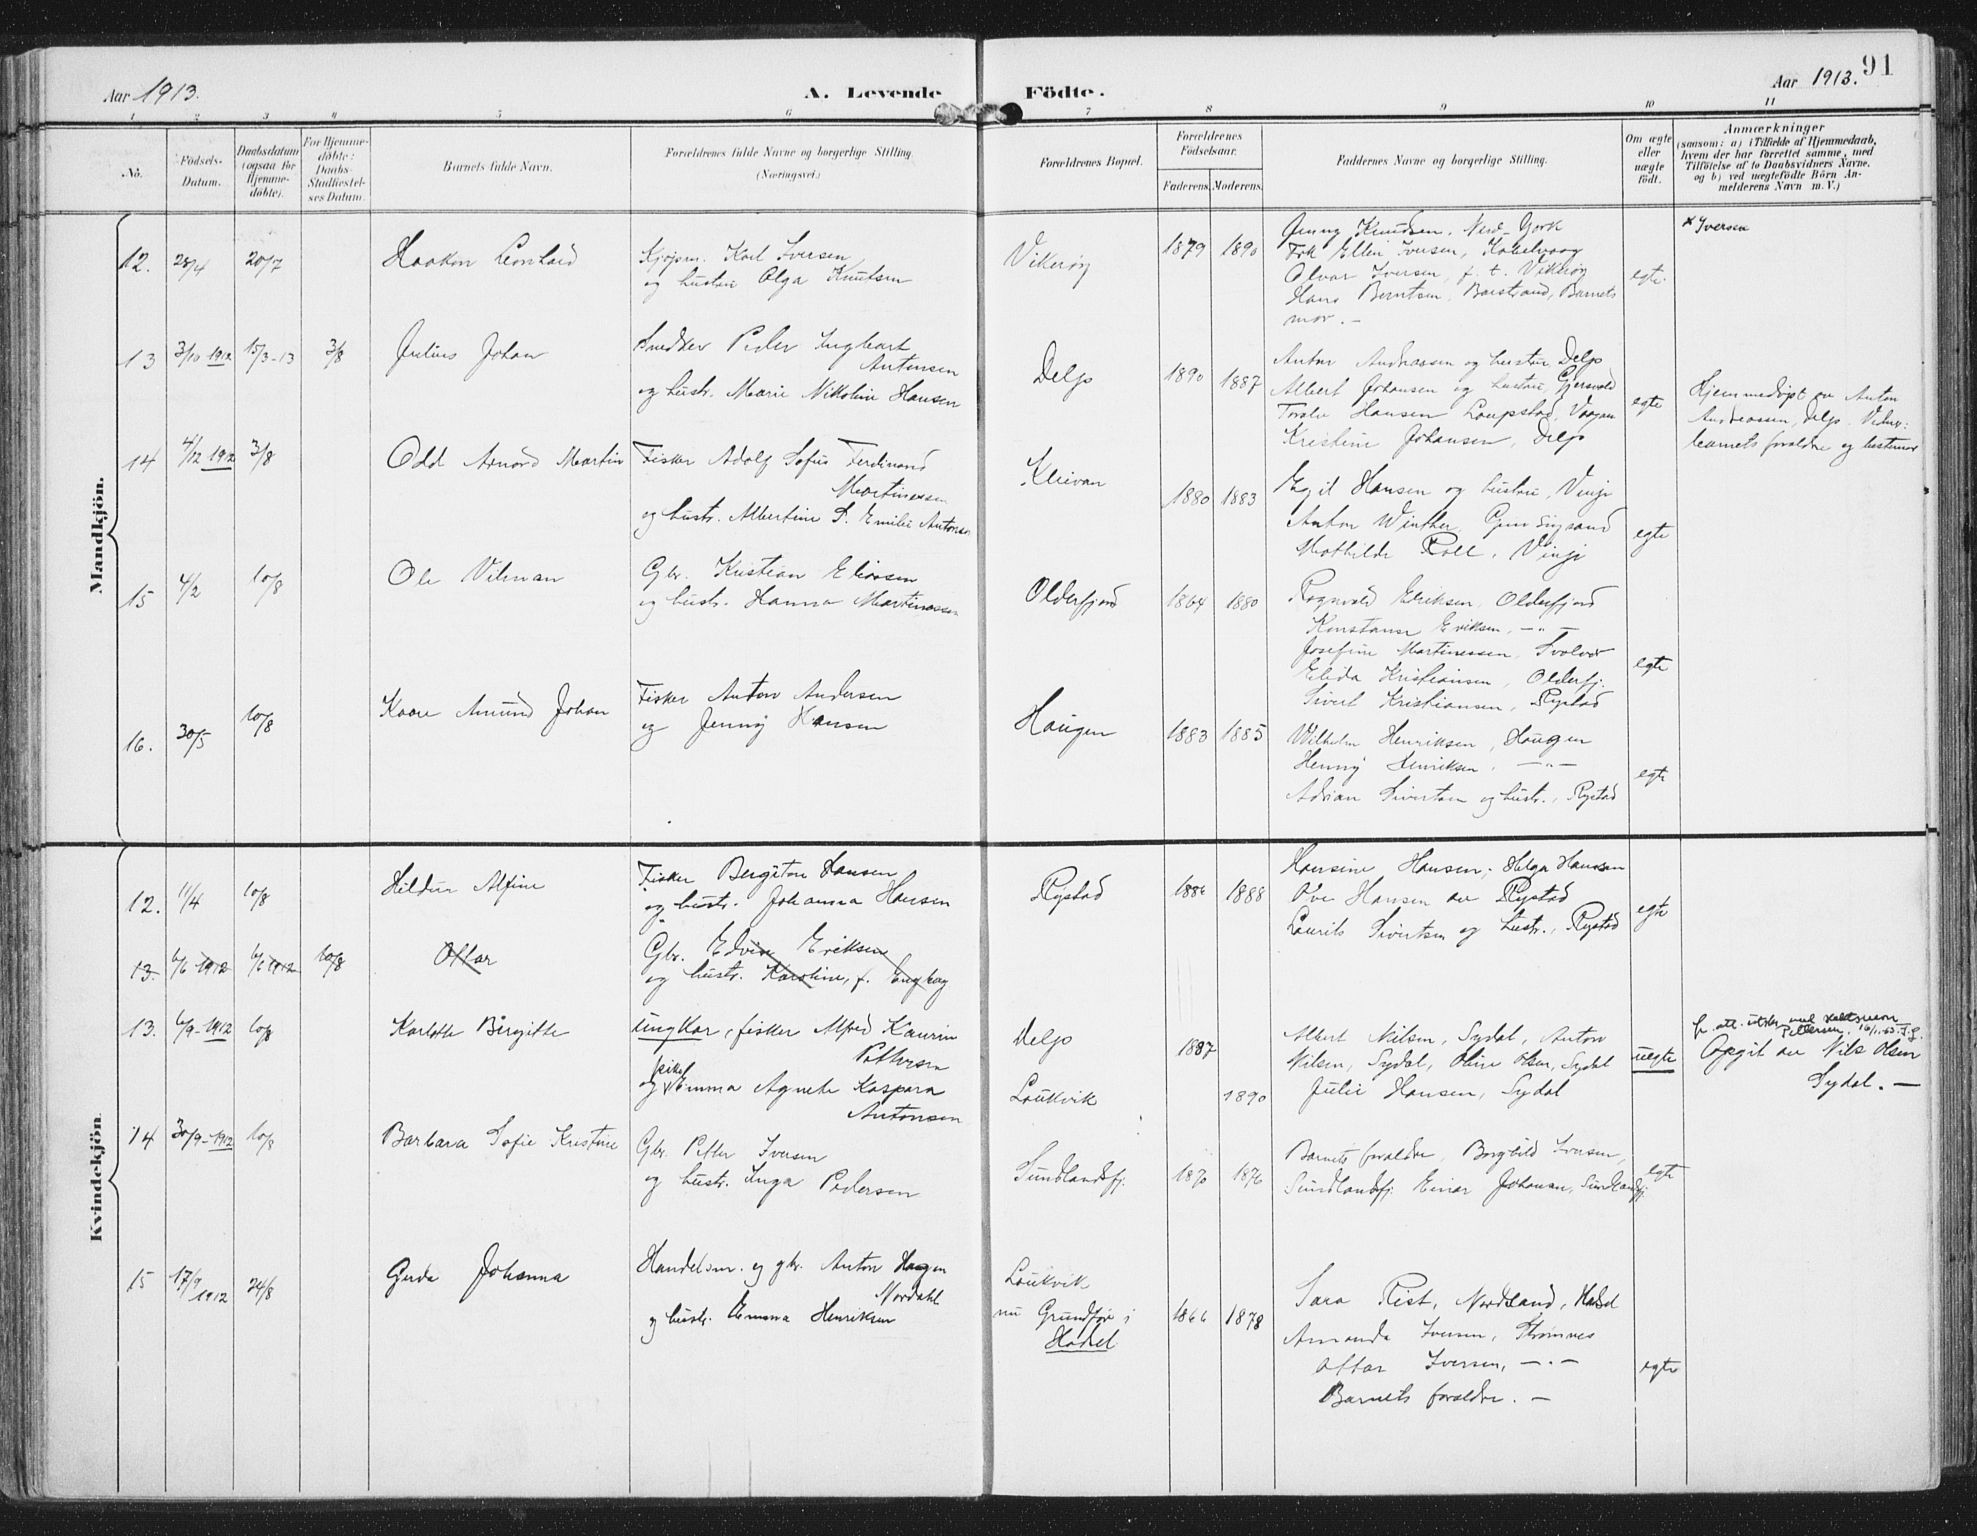 Aar 1913.
A. Levende Födte.
Aar 1913.
91
1 2 3 4 5 6 7 8 9 10 11
No.
Födsels-Datum.
Daabsdatum (ogsaa for Hjemmedöbte).
For Hjemmedöbte: Daabs-Stadfæstelses Datum.
Barnets fulde Navn.
Forældrenes fulde Navne og borgerlige Stilling.
(Næringsvei.)
Forældrenes Bopæl.
Forældrenes Födselsaar.
Faderens. Moderens.
Faddernes Navne og borgerlige Stilling.
Om ægte eller uægte födt.
Anmærkninger
(saasom: a) i Tilfælde af Hjemmedaab,
hvem der har forrettet samme, med
Tilföielse af to Daabsvidners Navne,
og b) ved uægtefödte Börn An-
melderens Navn m. V.)
Mandkjön.
12. 28/4 20/7 Haakon Leonhard
Kjøpm. Karl Iversen
og hustru Olga Knutsen
Vikerøy 1879 1890
Jenny Knudsen, New-York
Frk Ellen Iversen, Kabelvaag
Olvar Iversen, f. t. Vikerøy
Hans Berntsen, Barstrand, Barnets
mor. –
egte.
x Iversen
13 3/10 1912 15/3-13 3/8 Julius Johan
Snedker Peder Ingbart
Antonsen
og hustr. Marie Nikoline Hansen
Delp 1890 1887
Anton Andreassen og hustru Delp
Albert Johansen og hustru, Gjersvold
Hansen Laupstad, Vaagan
Kristine Johansen, Delp
egte
Hjemmedøpt av Anton
Andreassen, Delp. Vidner:
barnets foraldre og bestemor
14 4/12 1912 3/8 Odd Arnord Martin
Fisker Adolf Sofus Ferdinand
Martinessen
og hustr. Albertine S. Emilie Antonsen
Kleivan 1880 1883
Egil Hansen og hustru, Vinje
Anton Winther,
Mathilde Roll, Vinje
egte
15 4/2 10/8 Ole Vilman
Gbr. Kristian Eliassen
og hustr. Hanna Martinessen
Olderfjord 1864 1880
Ragnvald Eriksen, Olderfjord
Konstanse Eriksen, – " –
Josefine Martinessen, Svolvær
Elida Kristiansen, Olderfj.
Sivert Kristiansen, Rystad
egte
16. 30/5 10/8 Kaare Amund Johan
Fisker Anton Andersen
og Jenny Hansen
Haugen 1883 1885
Wilhelm Henriksen, Haugen
Henny Henriksen, – " –
Adrian Sivertsen og hustr., Rystad
egte
Kvindekjön
12. 11/4 10/8 Hildur Alfine
Fisker Bergiton Hansen
og hustr. Johanna Hansen
Rystad 1886 1888
Hansine Hansen, Helga Hanssen
Ove Hansen av Rystad
Laurits Sivertsen og hustr., Rystad
egte
13. 6/6 1912 6/6 1912 10/8 Ottar
Gbr. Edvin Eriksen
og hustr. Karoline, f. Enghag
13. 6/9-1912 10/8 Karlotte Birgitte
ungkar, fisker Alfred Kaurin
Pettersen
og pike Emma Agnete Kaspara
Antonsen
Delp 1887
Laukvik 1890
Albert Nilsen, Sydal, Anton
Nilsen, Sydal, Oline Olsen, Sydal
Julie Hansen, Sydal
uegte
Pettersen, 16/1-63
Opgit av Nils Olsen
Sydal. –
14 30/9-1912 10/8 Barbara Sofie Kristine
Gbr. Petter Iversen
og hustr. Inga Pedersen
Sundlandsfj. 1870 1876
Barnets foraldre, Borghild Iversen,
Sundlandsfj. Einar Johansen, Sundlandsfj.
egte
15 17/9 1912 24/8 Gerda Johanna
Handelsm. og gbr. Anton Hagen
Nordahl
og hustr. Emma Henriksen
Laukvik
nu Grundfør i
Hadsel
1866 1878
Sara Rist, Nordland, Hadsel
Amanda Iversen, Strømnes
Ottar Iversen, – " –
Barnets foraldre. –
egte